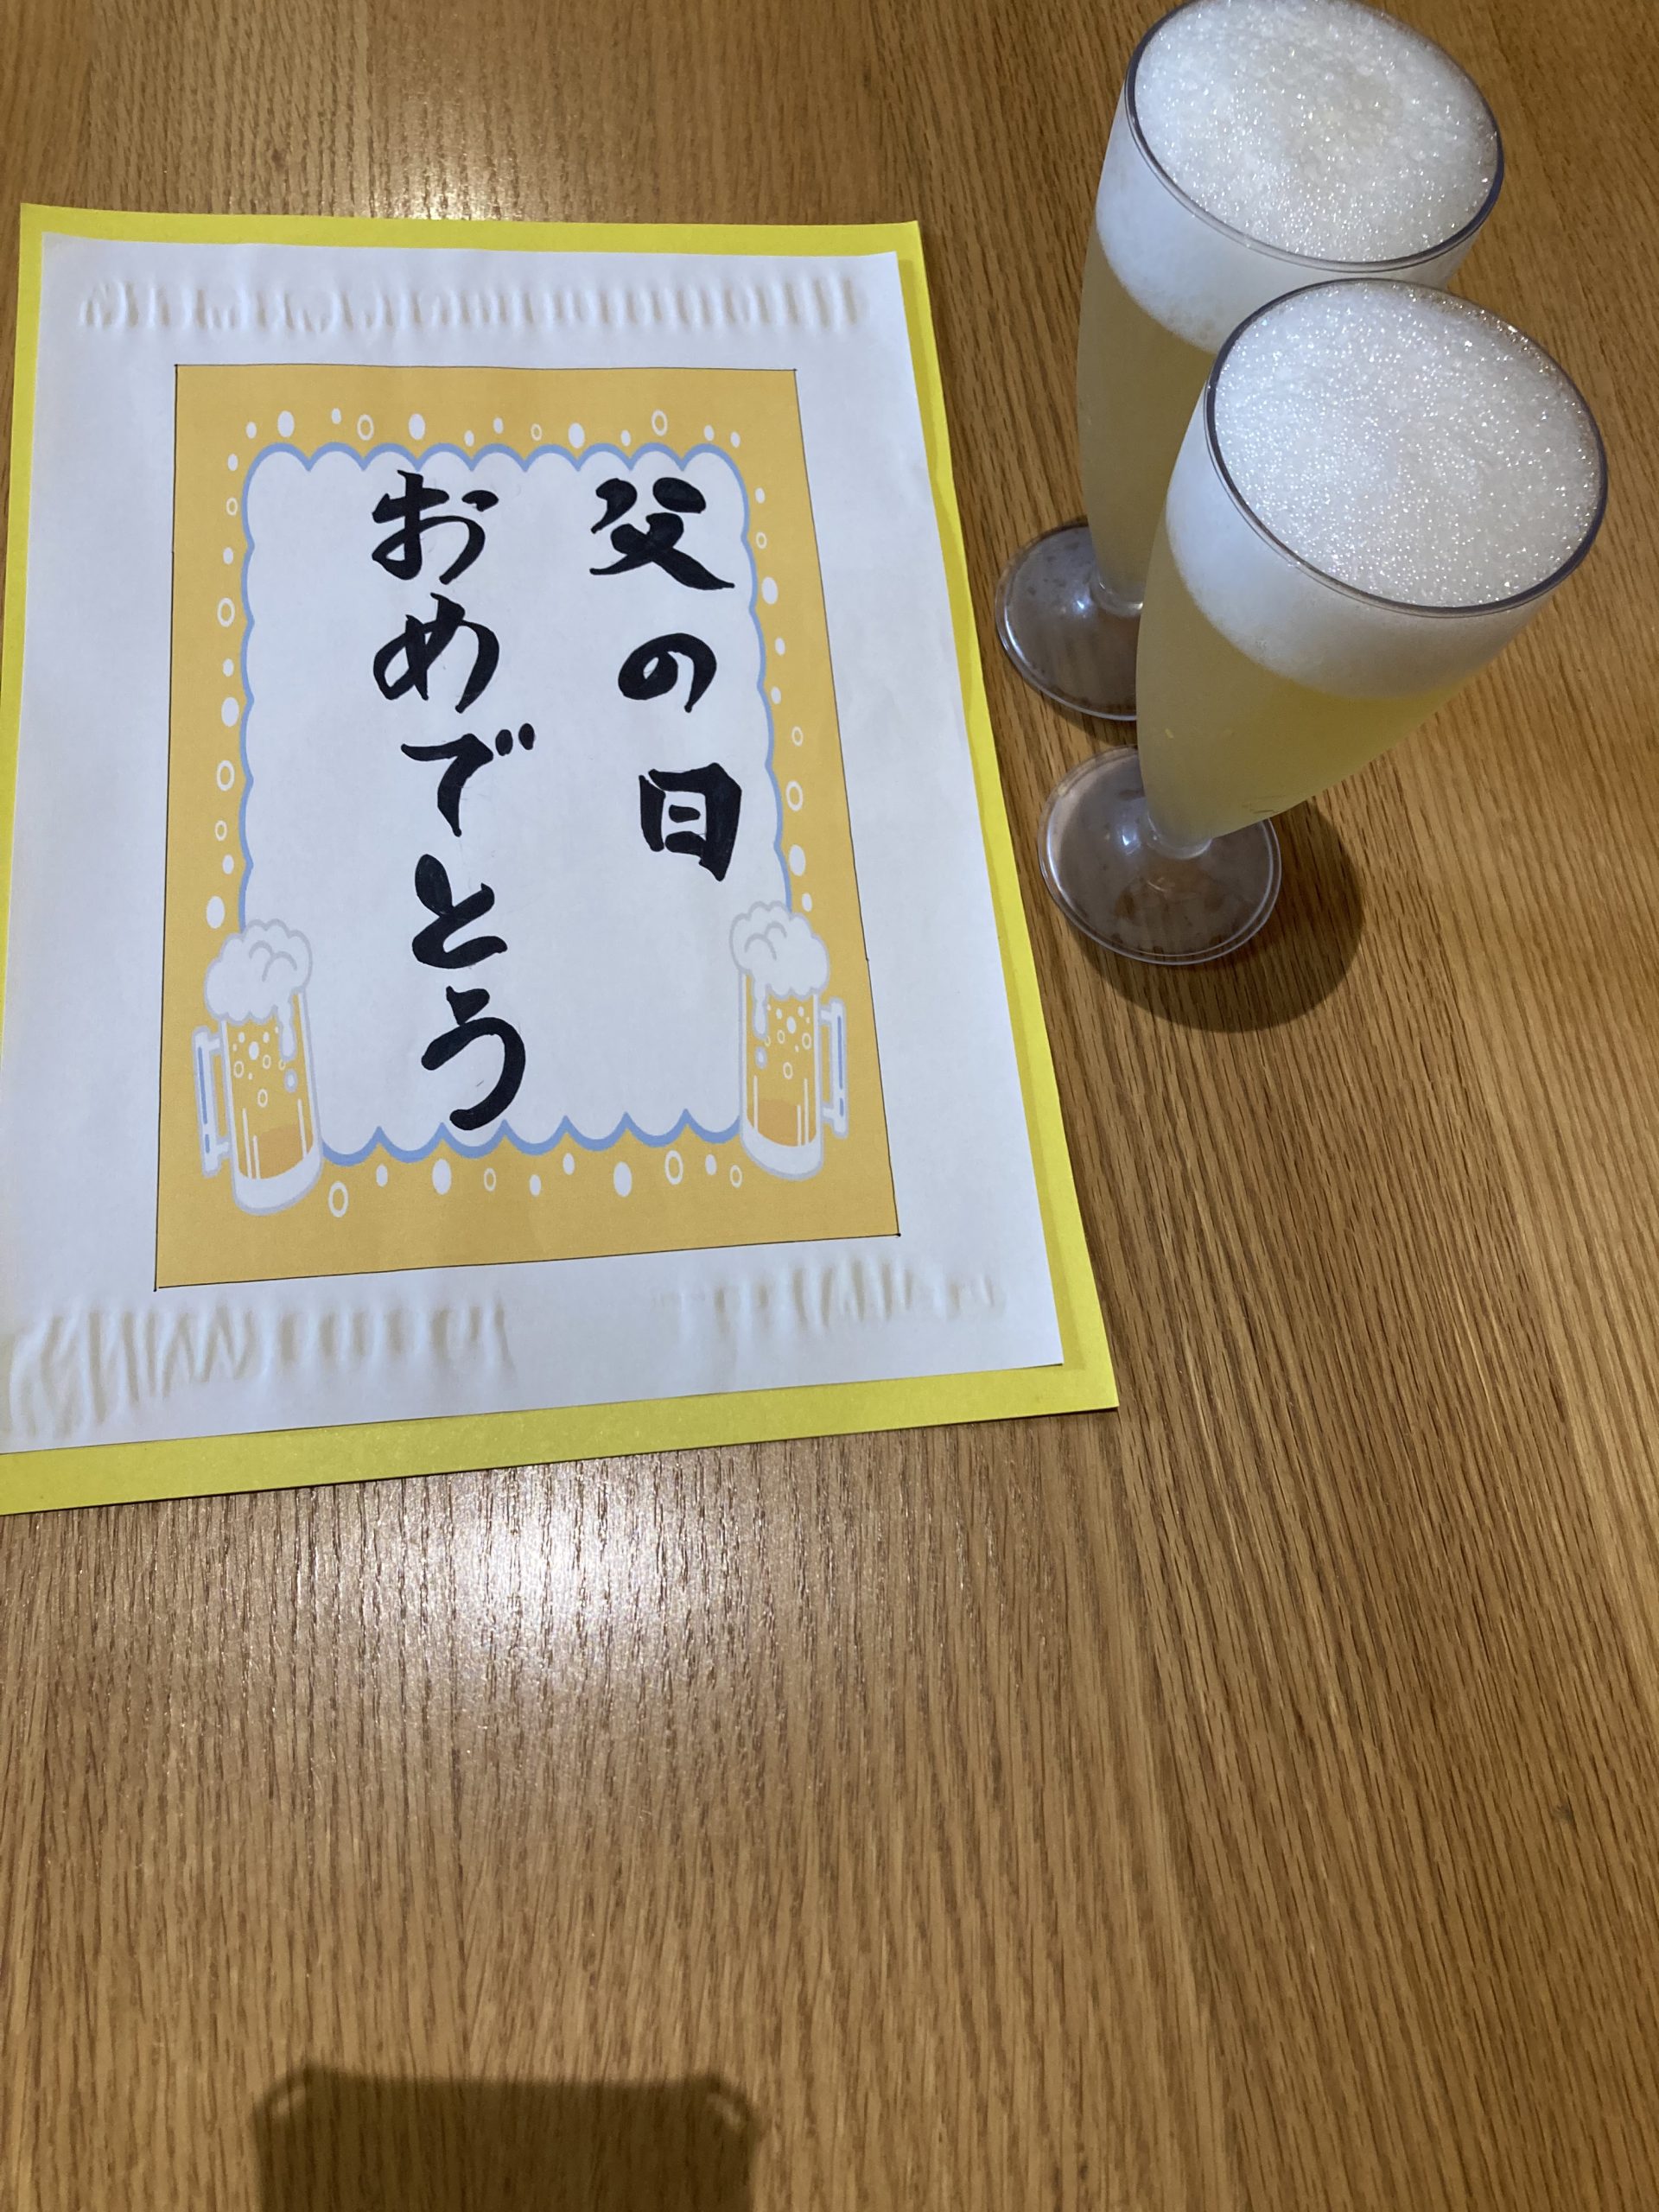 父の日
おめでとう